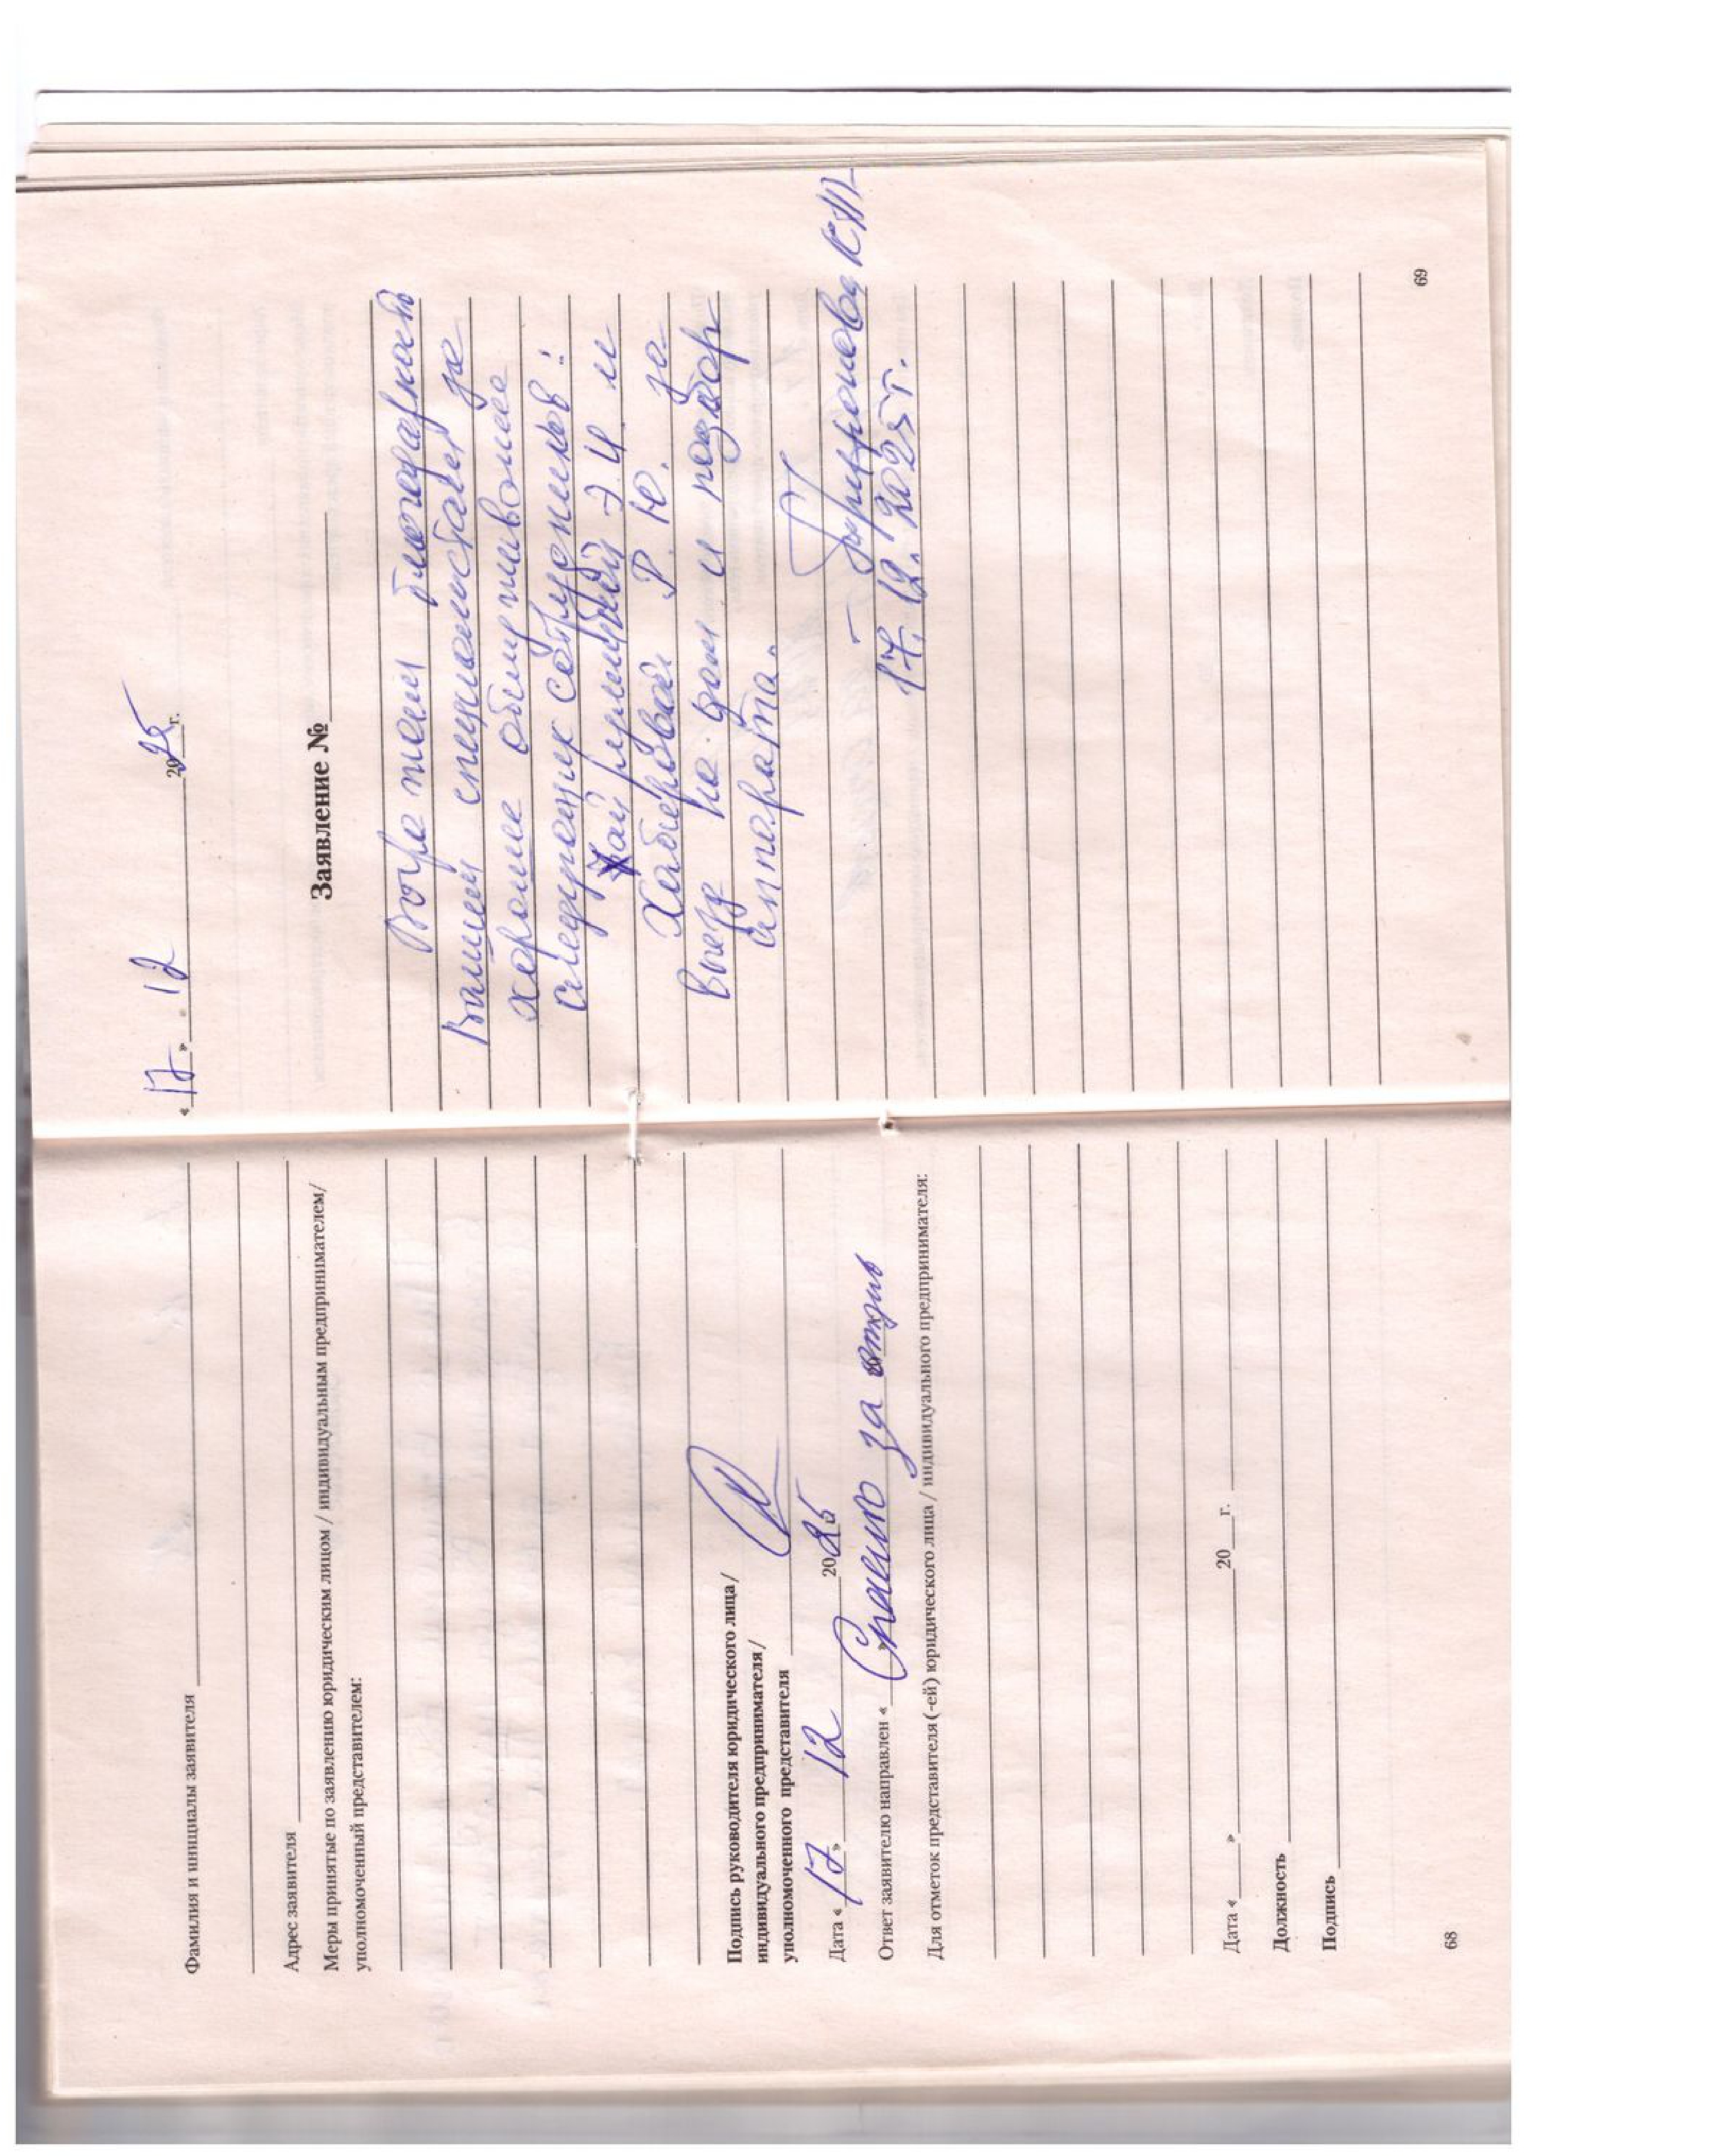 Фамилия и инициалы заявителя
Адрес заявителя
Меры принятые по заявлению юридическим лицом / индивидуальным предпринимателем/
уполномоченный представителем:
Подпись руководителя юридического лица/
индивидуального предпринимателя/
уполномоченного представителя
Дата « 17 » 12 2025
Ответ заявителю направлен « » Спасибо за отзыв
Для отметок представителя (-ей) юридического лица / индивидуального предпринимателя:
Дата « » 20 г.
Должность
Подпись
68
« 17 » 12 2025 г.
Заявление №
Выражаем благодарность
Вашим специалистам за
хорошее обслуживание
следующих сотрудников:
Э.И. и
Хабировой Р. Ю. за
выезд на дом и подбор
аппарата.
17. 12. 2025г.
69